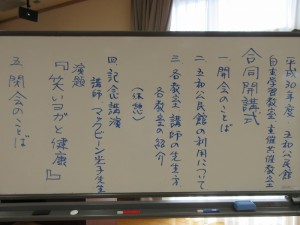 平成30年度 五和公民館
自主学習教室・主催共催教室
合同開講式
一 開会のことば
二 五和公民館の利用について
三 各教室 講師の先生方
各教室の紹介
(休憩)
四 記念講演
講師 マクビーン 先生
演題
『笑いヨガと健康』
五 閉会のことば